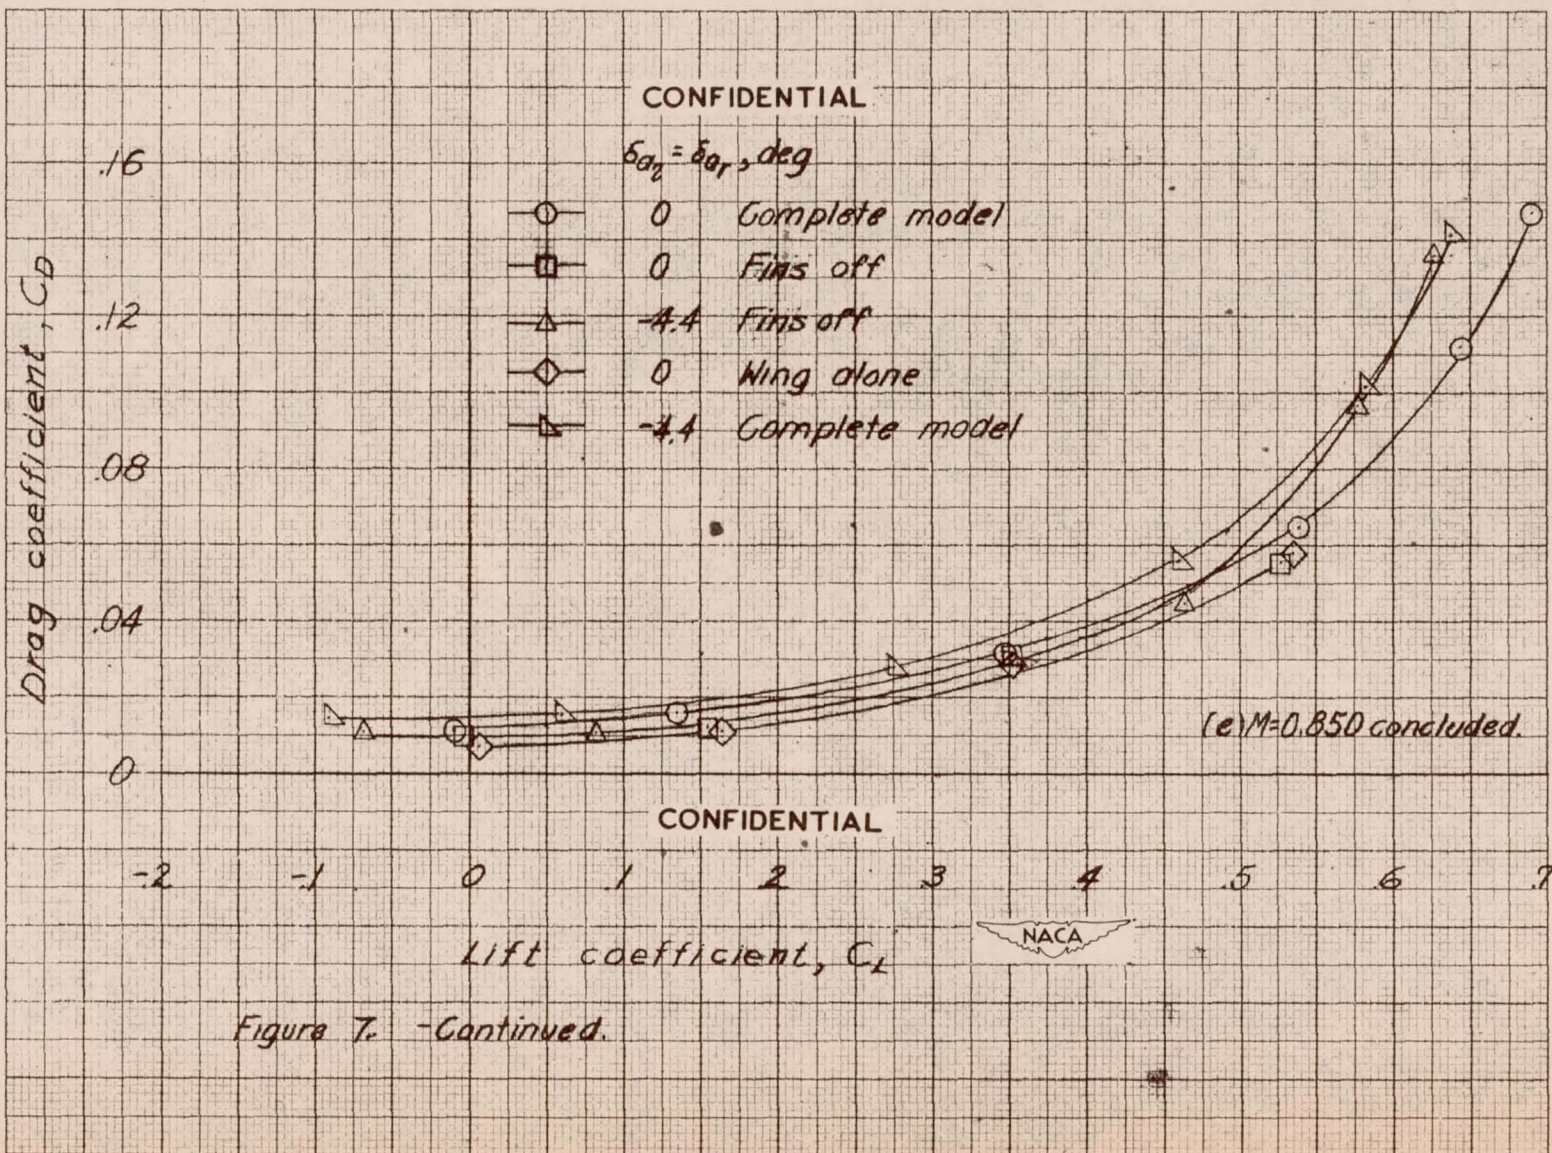 CONFIDENTIAL
δaɩ = δar, deg
0 Complete model
0 Fins off
-4.4 Fins off
0 Wing alone
-4.4 Complete model
.16
.12
.08
.04
0
Drag coefficient, CD
(e) M=0.850 concluded.
CONFIDENTIAL
-.2 -.1 0 .1 .2 .3 .4 .5 .6 .7
Lift coefficient, CL
NACA
Figure 7. -Continued.